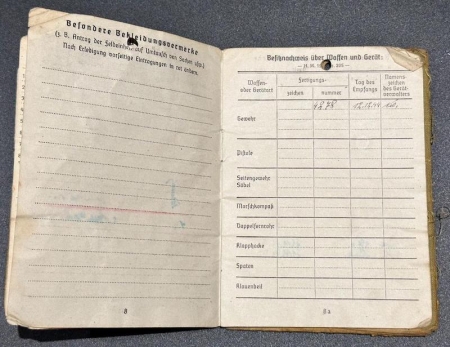 Besondere Bekleidungsvermerke
(z. B. Antrag der Selbsteinkl. auf Umtausch von Sachen usw.)
Nach Erledigung vorseitige Eintragungen in rot ändern.
8
Besitznachweis über Waffen und Gerät:
Waffen- oder Geräteart
Fertigungs-
zeichen
nummer
Tag des Empfangs
Namenszeichen des Gerätverwalters
Gewehr
Pistole
Seitengewehr
Säbel
Marschkompaß
Doppelfernrohr
Klapphacke
Spaten
Klauenbeil
8a